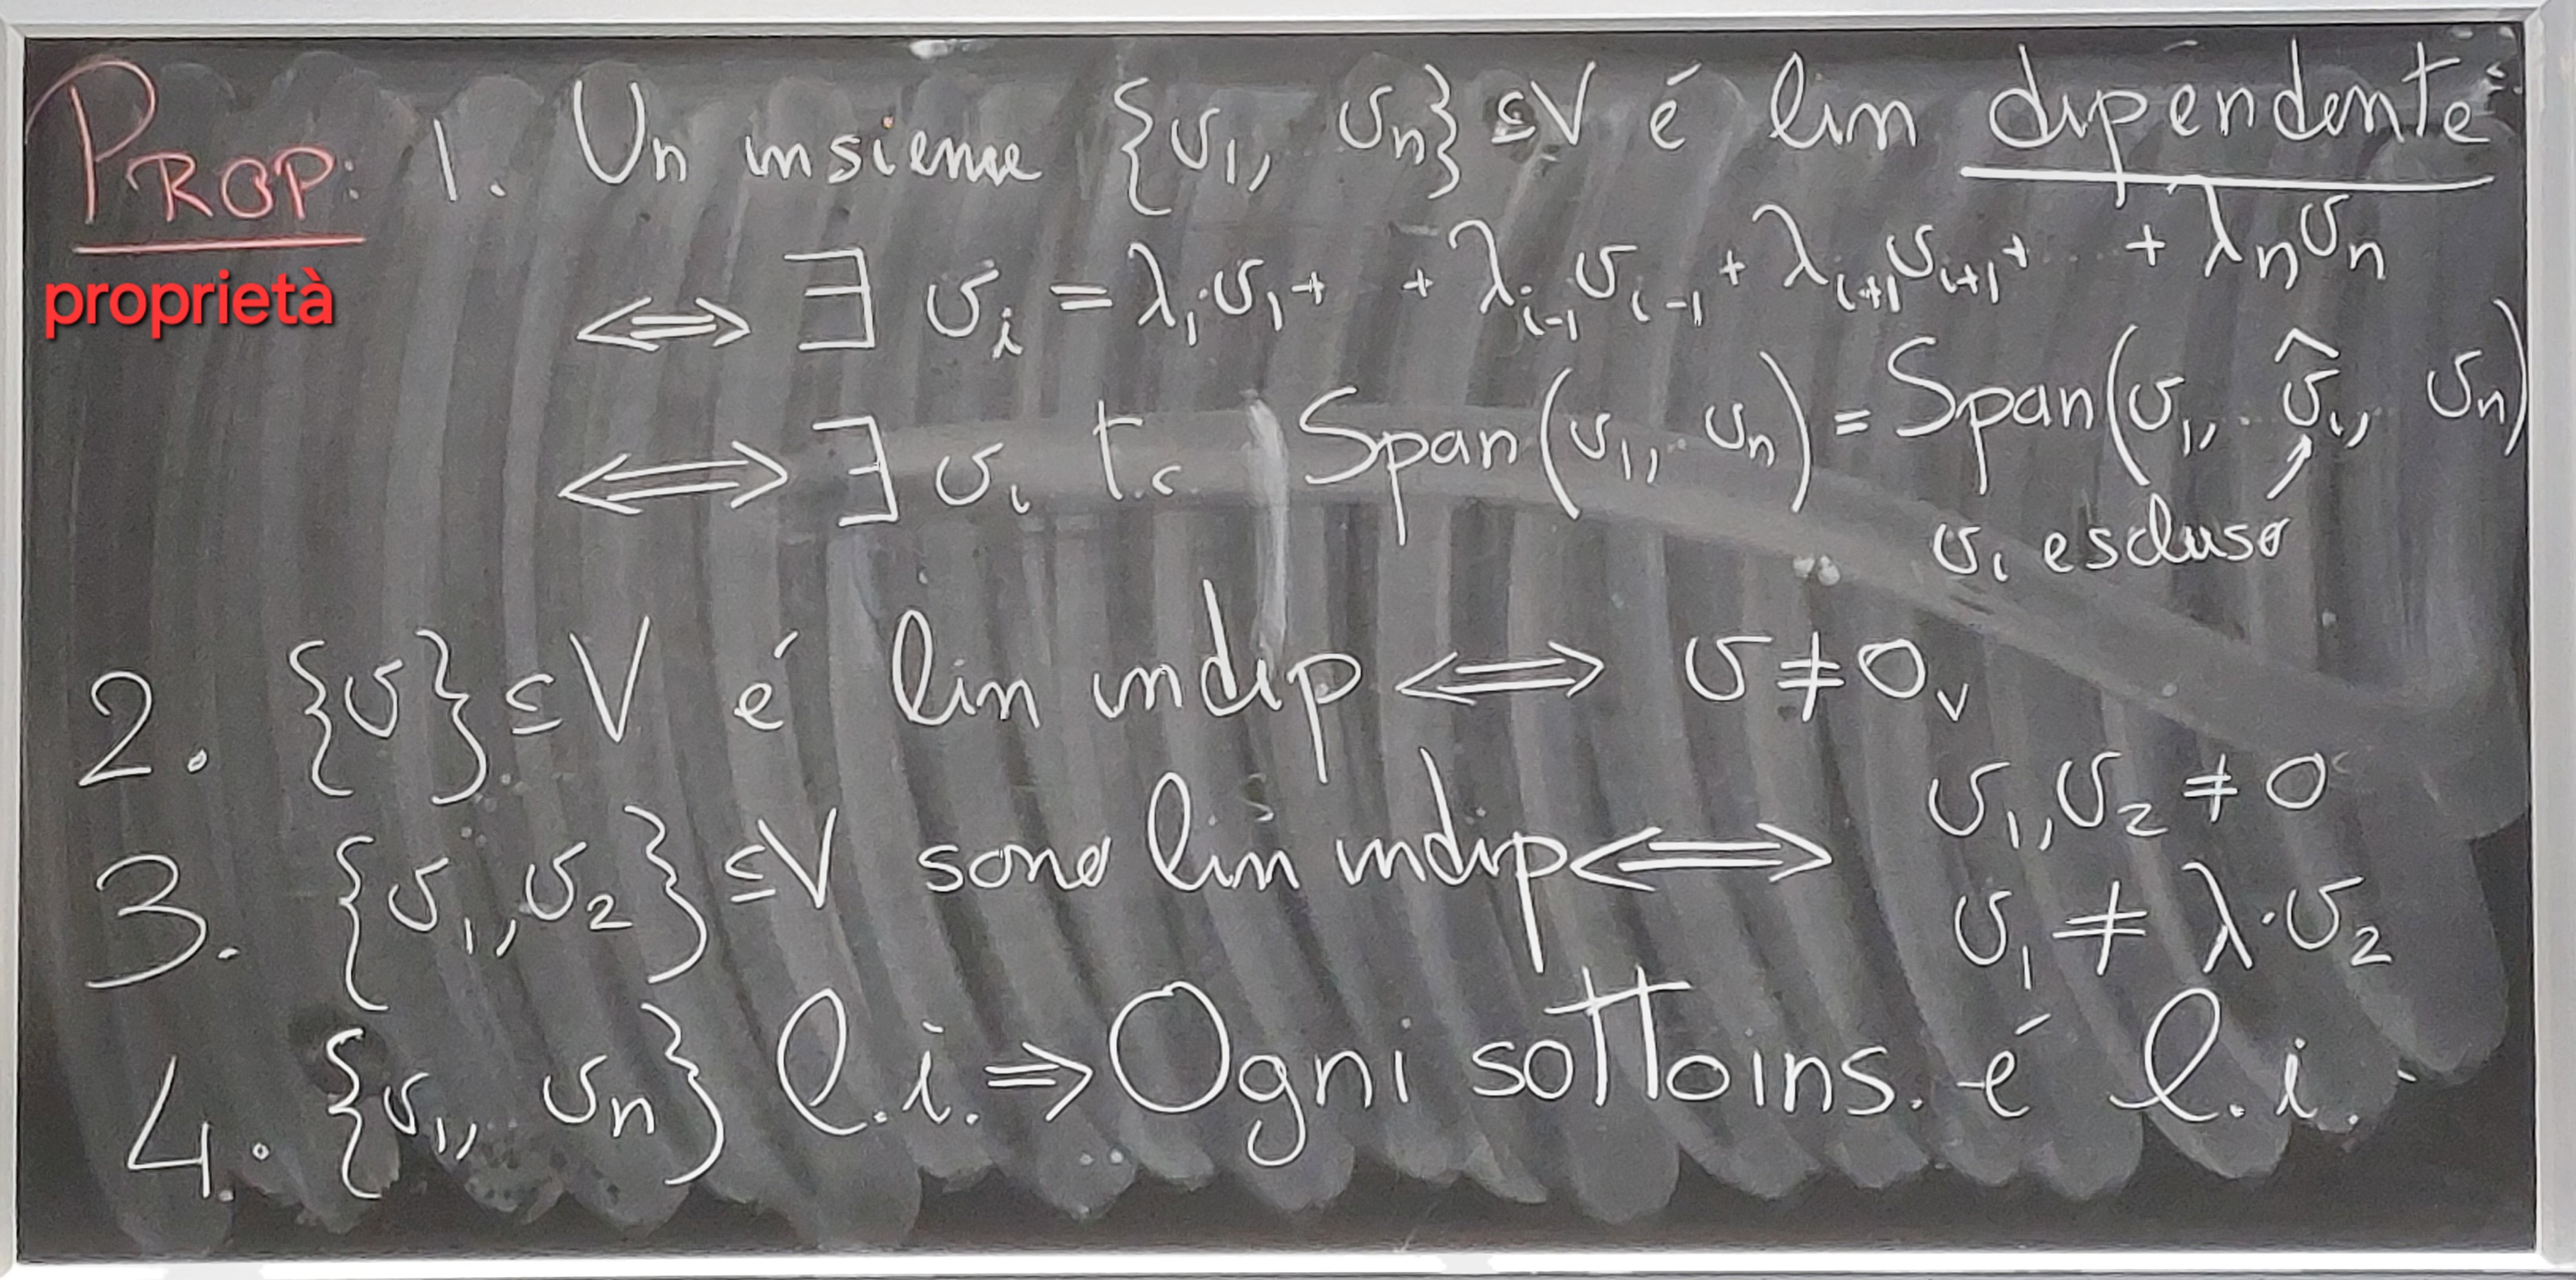 PROP: 1. Un insieme {v₁, vₙ} ⊆V é lin dipendente
proprietà
⟺ ∃ vᵢ = λ₁·v₁+ +λᵢ₋₁vᵢ₋₁+λᵢ₊₁vᵢ₊₁+ ... +λₙvₙ
⟺ ∃ vᵢ t.c. Span(v₁,.. vₙ) = Span(v₁,.. v̂ᵢ,.. vₙ)
vᵢ escluso
2. {v}⊆V é lin indip ⟺ v≠0ᵥ
3. {v₁,v₂}⊆V sono lin indip ⟺ v₁,v₂ ≠0
v₁ ≠ λ·v₂
4. {v₁, vₙ} l.i. ⇒ Ogni sottoins. é l.i.